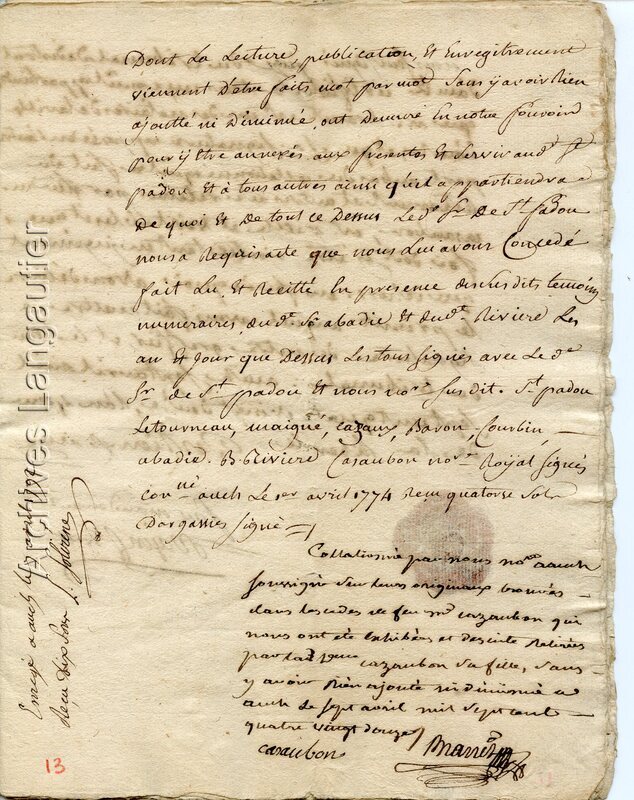 Dont La Lecture, publication, Et Enregitrement
viennent D'etre faits mot par mot Sans y avoir Rien
ajoutté ni Diminué, ont Demuré En notre Pouvoir
pour y Etre annexés aux presentes Et Servir aud. Sr
padou Et à tous autres ainsi qu'il appartiendra
De quoi Et De tout ce Dessus Led. Sr De St padou
nous a Requis acte que nous Lui avons Concedé
fait Lu, Et Recitté En presence desusdits temoins
numeraires, dud. Sr abadie Et dud. Riviere Les
an Et Jour que Dessus Les tous signés avec Le d.
Sr de St padou Et nous nore susdit. St padou
Letourneau, maigné, cazaux, Baron, Courbin,
abadie. B. Riviere Casaubon nore Royal signés
Conné auch Le 1er avril 1774 Reçu quatorse sols
Dargassies signé
Collationné par nous nore a auch
soussigné sur leurs originaux trouvés
dans les cedes de feu me cazaubon qui
nous ont été Exhibées et desuite Retirées
par lad. cazaubon sa fille, sans
y avoir Rien ajouté ni diminué a
auch Le sept avril mil sept cent
quatre vingt douze
casaubon
a auch
Reçu dix sous
Archives Langautier
13